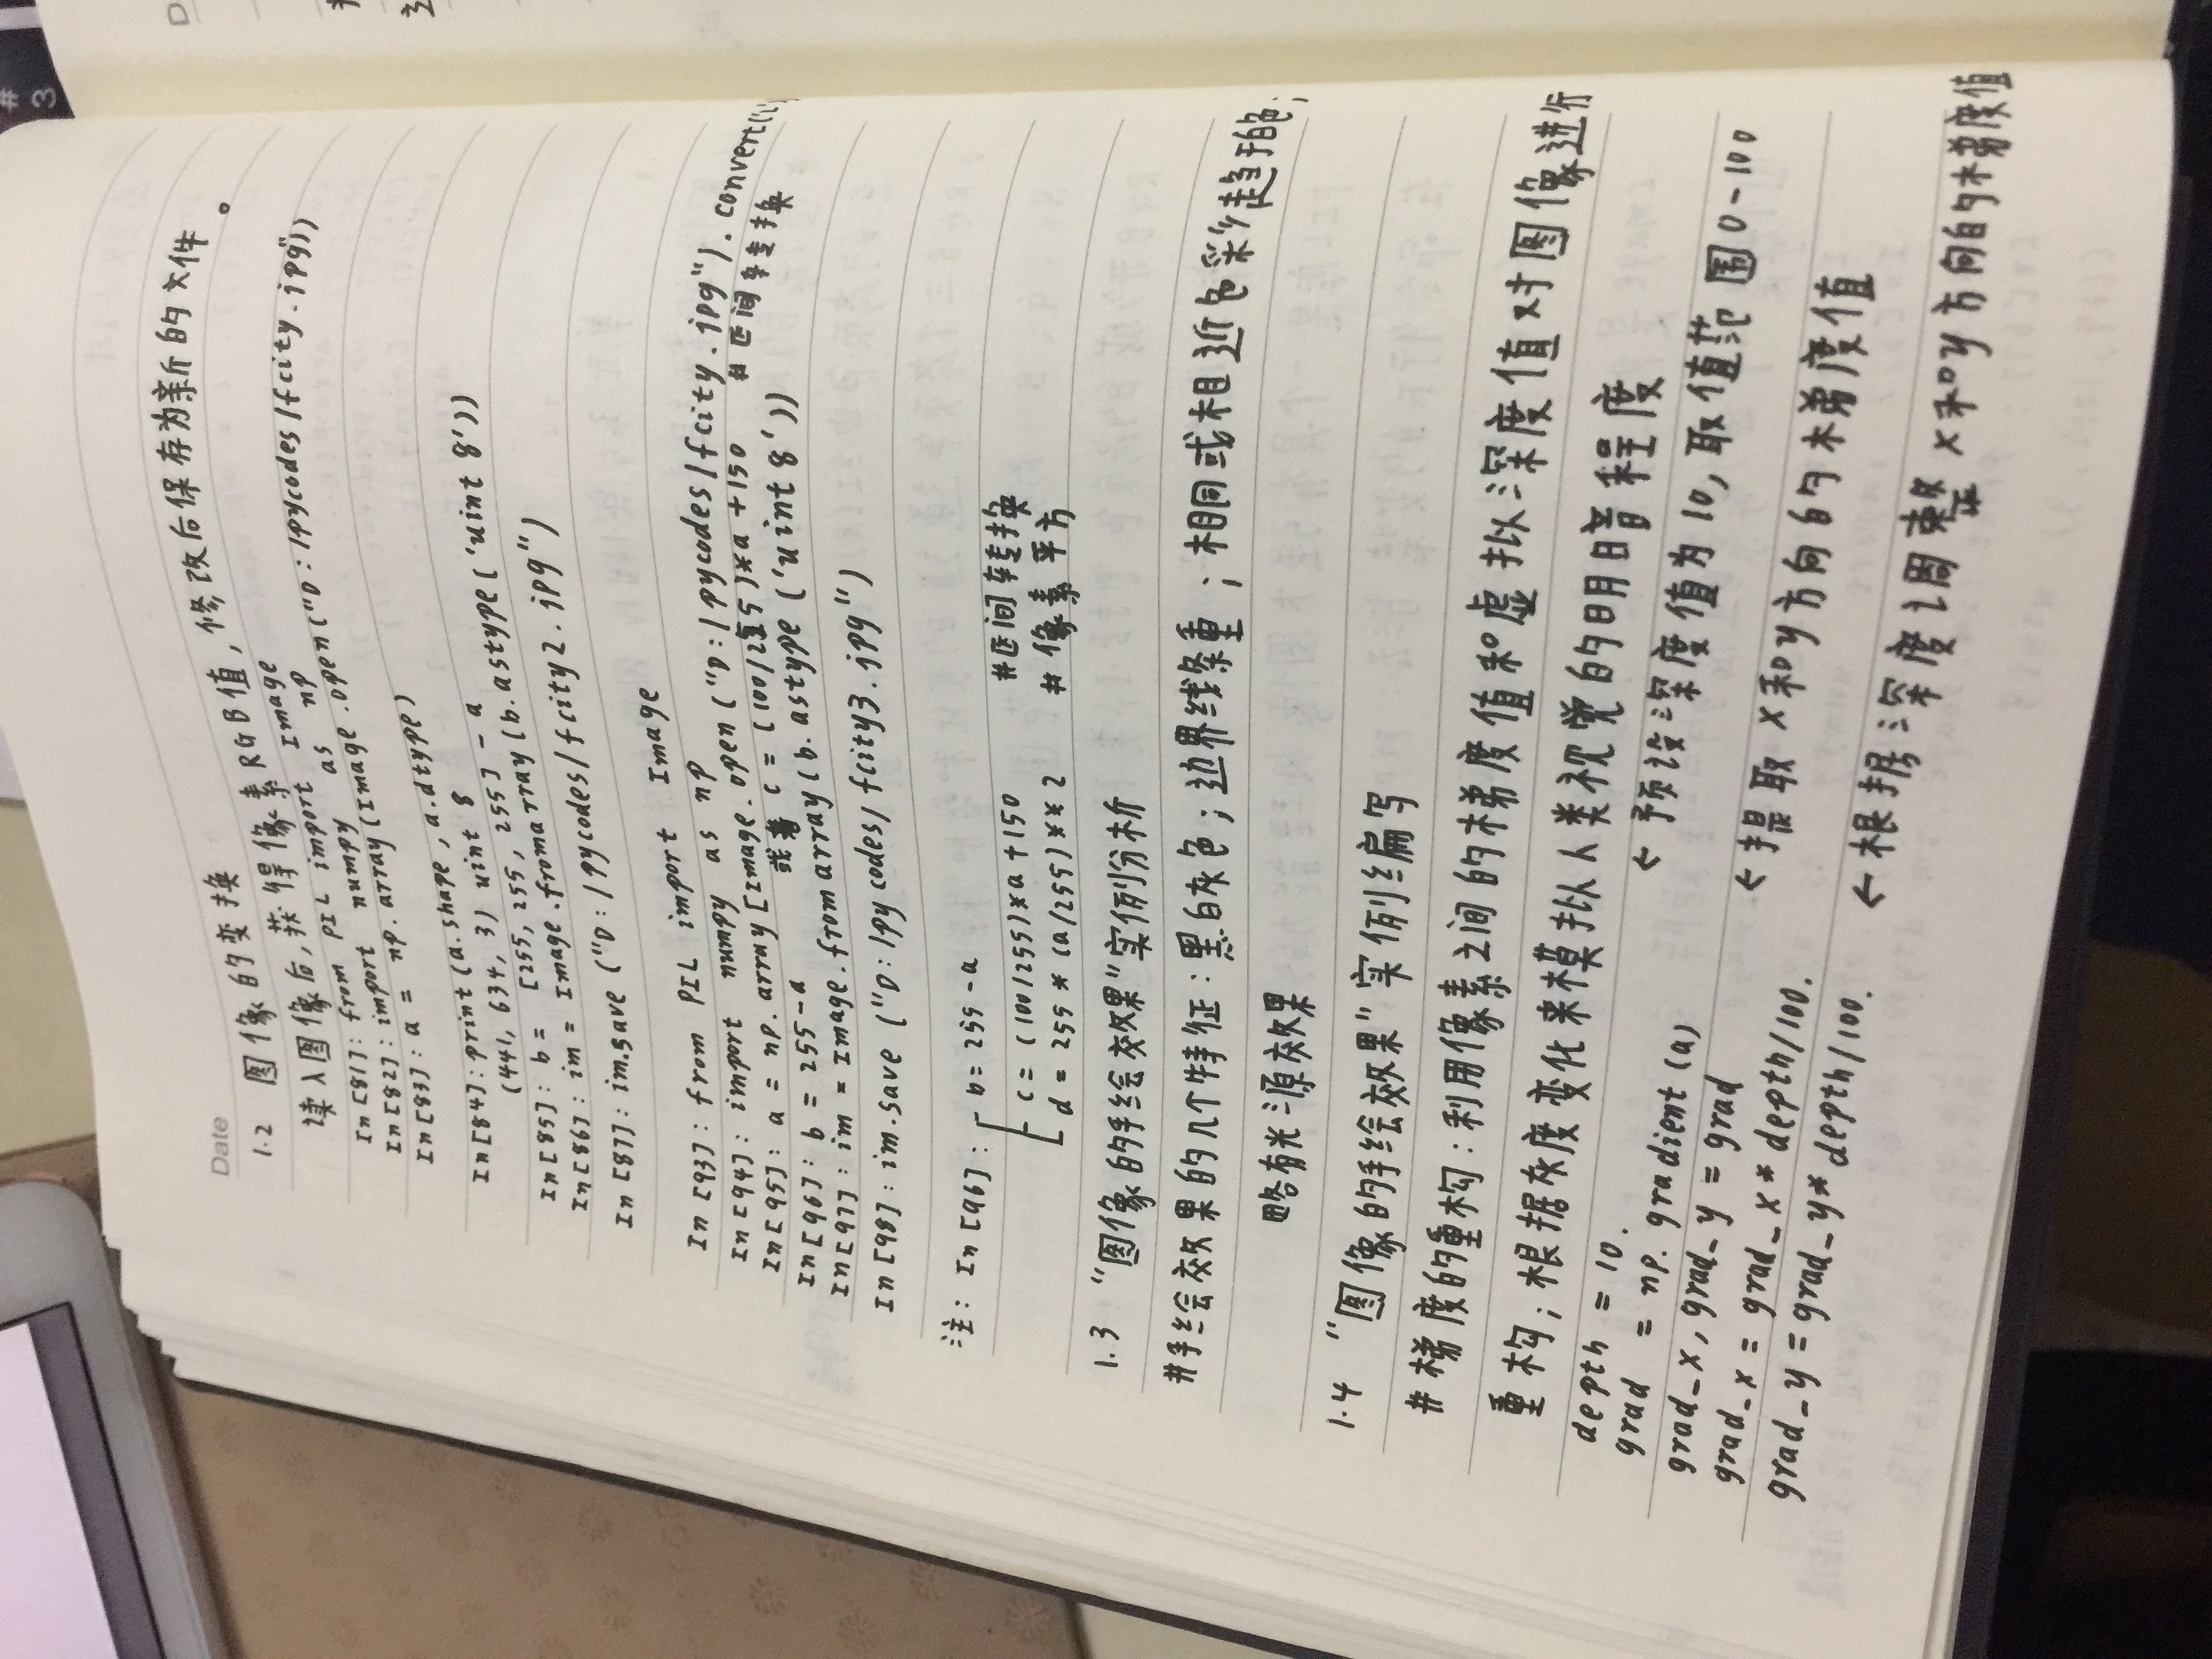 #
3
Date
1.2 图像的变换
读入图像后,获得像素RGB值,修改后保存为新的文件。
In [81]: from PIL import Image
In [82]: import numpy as np
In [83]: a = np.array(Image.open("D:/pycodes/fcity.jpg"))
In [84]: print(a.shape, a.dtype)
(441, 634, 3) uint 8
In [85]: b = [255, 255, 255] - a
In [86]: im = Image.fromarray(b.astype('uint 8'))
In [87]: im.save ("D:/pycodes/fcity2.jpg")
In [93]: from PIL import Image
In [94]: import numpy as np
In [95]: a = np.array[Image.open ("D:/pycodes/fcity.jpg").convert('L')
In [96]: b = 255-a 或者 c = (100/255)*a +150 #区间转换
In [97]: im = Image.fromarray(b.astype ('uint 8'))
In [98]: im.save ("D:/pycodes/fcity3.jpg")
注: In [96]: b = 255-a
c = (100/255)*a +150 #区间转换
d = 255 * (a/255)**2 # 像素平方
1.3 "图像的手绘效果"实例分析
#手绘效果的几个特征:黑白灰色;边界线条重;相同或相近色彩趋于白色;
略有光源效果
1.4 "图像的手绘效果"实例编写
# 梯度的重构:利用像素之间的梯度值和虚拟深度值对图像进行
重构;根据灰度变化来模拟人类视觉的明暗程度
depth = 10. ← 预设深度值为10,取值范围0-100
grad = np.gradient(a)
grad_x, grad_y = grad ← 提取x和y方向的梯度值
grad_x = grad_x * depth/100.
grad_y = grad_y* depth/100. ← 根据深度调整x和y方向的梯度值